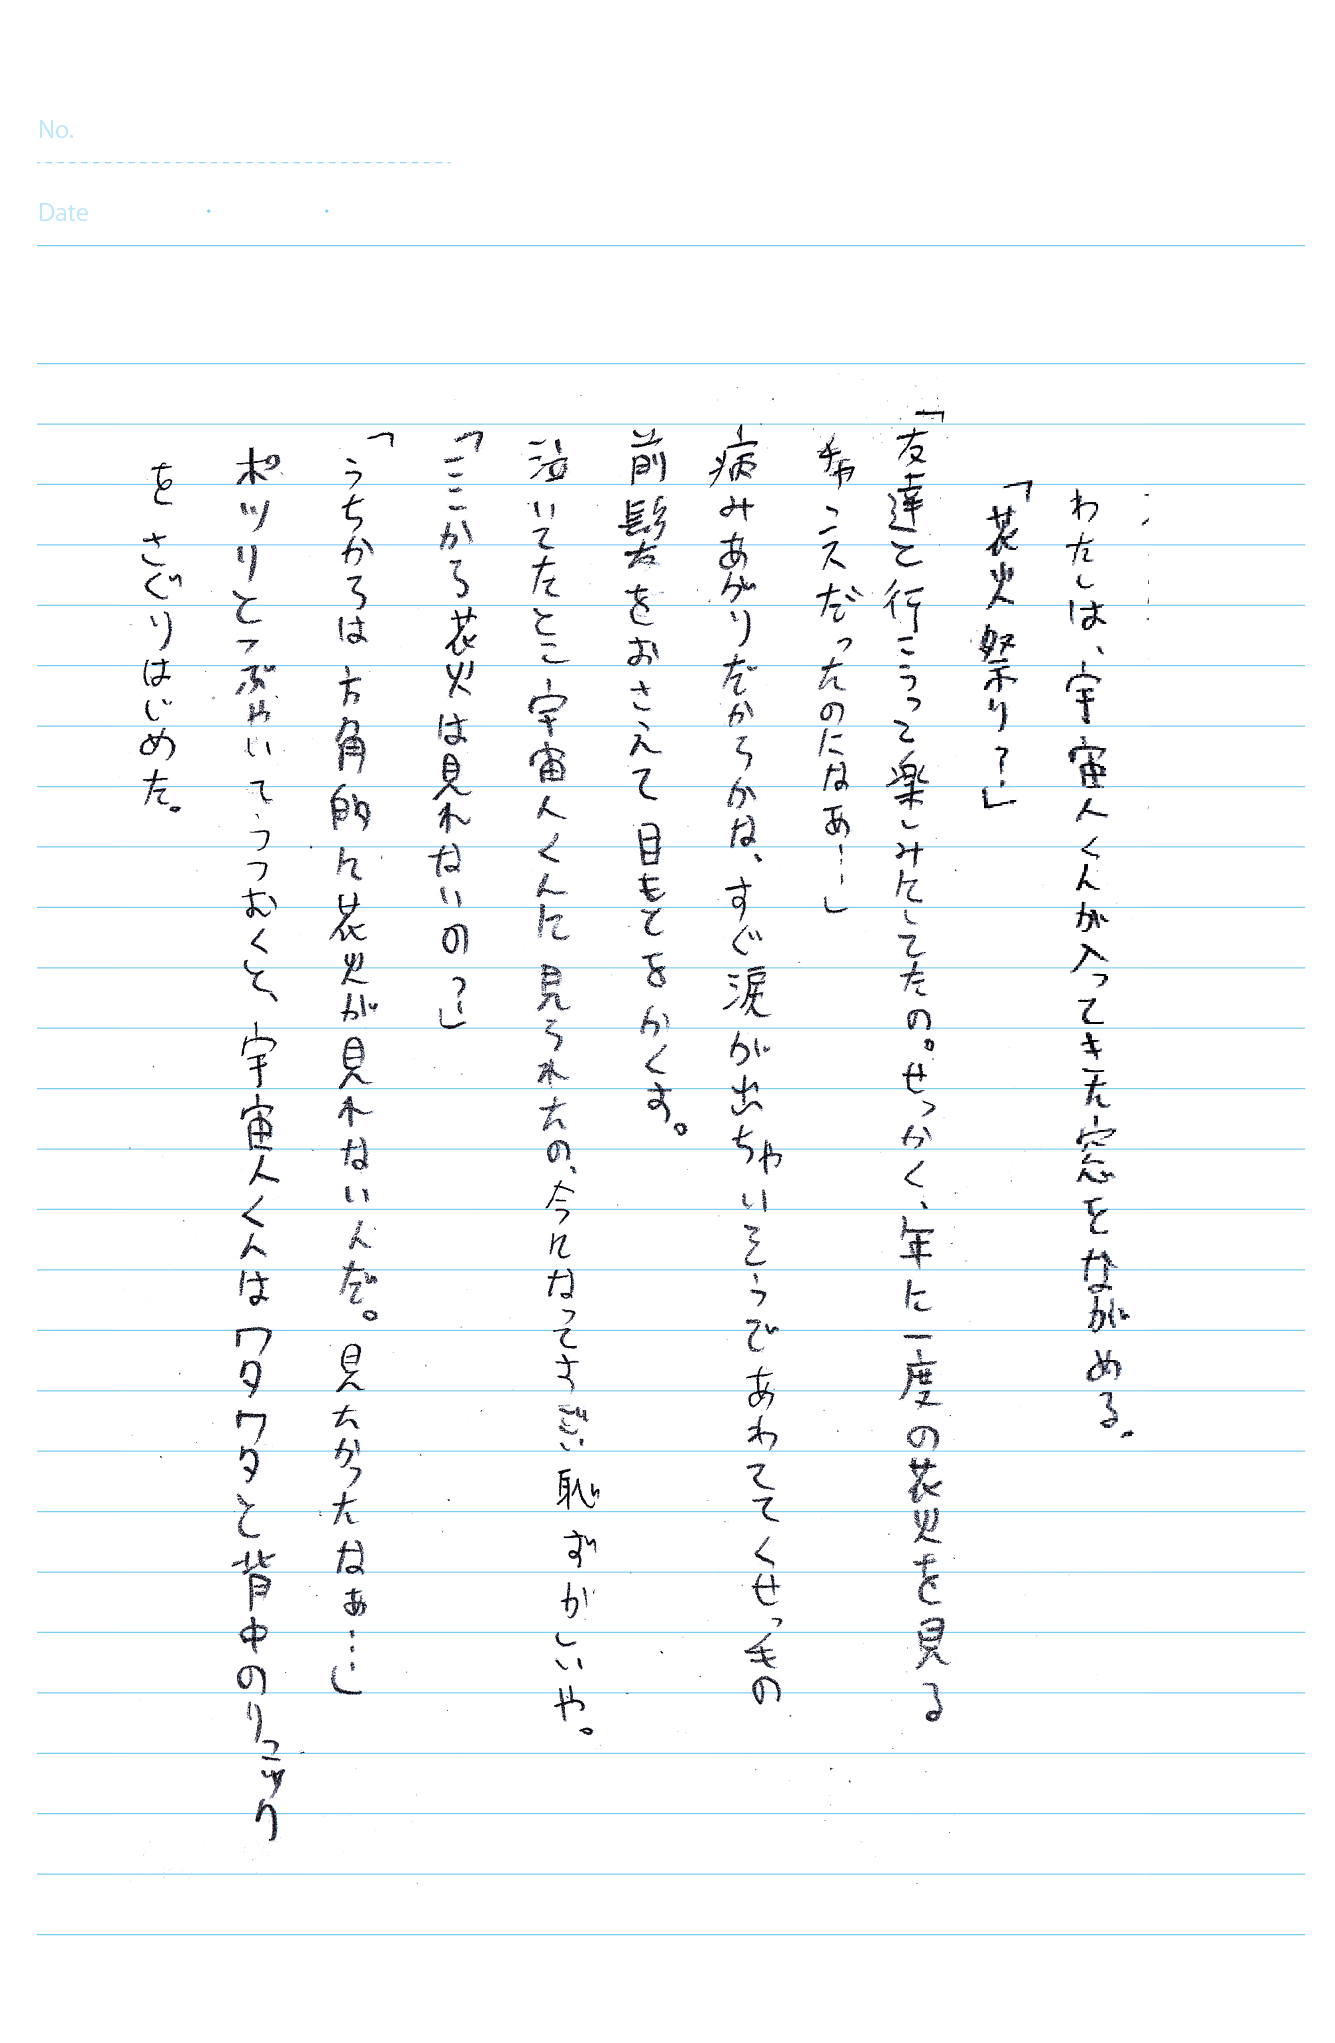 No.
Date
わたしは、宇宙人くんが入ってきた窓をながめる。
「花火祭り？」
「友達と行こうって楽しみにしてたの。せっかく、年に一度の花火を見る
チャンスだったのになぁ…」
病みあがりだからかな、すぐ涙が出ちゃいそうであわててくせっ毛の
前髪をおさえて目もとをかくす。
泣いてたとこ宇宙人くんに見られたの、今になってすごい恥ずかしいや。
「ここから花火は見れないの？」
「うちからは方角的に花火が見れないんだ。見たかったなぁ…」
ポツリとつぶやいてうつむくと、宇宙人くんはワタワタと背中のリュック
をさぐりはじめた。